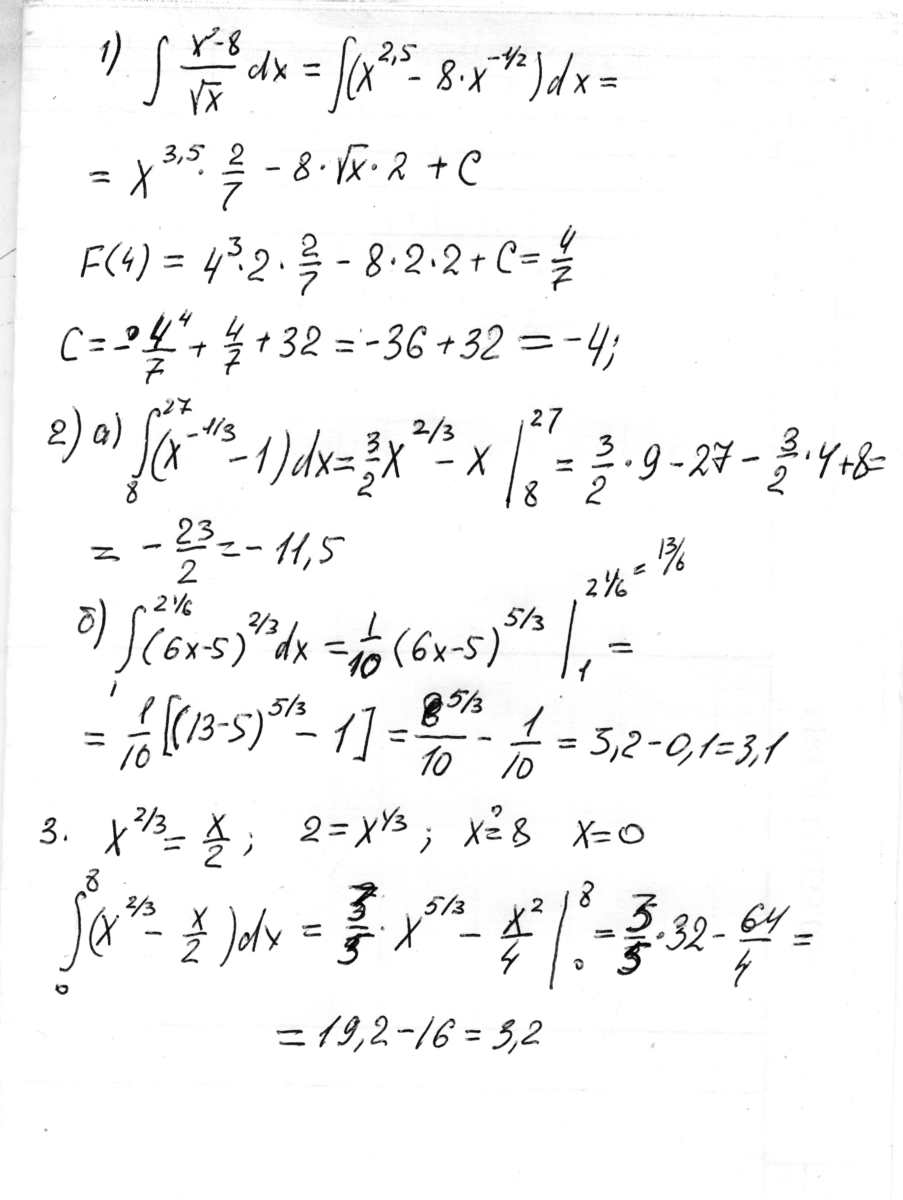 1) ∫ (x²-8)/√x dx = ∫(x^2,5 - 8·x^-1/2)dx =
= x^3,5 · 2/7 - 8·√x·2 + C
F(4) = 4³·2·2/7 - 8·2·2 + C = 4/7
C = - 4⁴/7 + 4/7 + 32 = -36 + 32 = -4;
2) а) ∫₈²⁷ (x^-1/3 - 1)dx = 3/2 x^2/3 - x |₈²⁷ = 3/2·9 - 27 - 3/2·4 + 8 =
= - 23/2 = - 11,5
б) ∫₁^2 1/6 (6x-5)^2/3 dx = 1/10 (6x-5)^5/3 |₁^2 1/6 = 13/6 =
= 1/10 [(13-5)^5/3 - 1] = 8^5/3/10 - 1/10 = 3,2 - 0,1 = 3,1
3. x^2/3 = x/2; 2 = x^1/3; x = 8 x = 0
∫₀⁸ (x^2/3 - x/2)dx = 3/5 · x^5/3 - x²/4 |₀⁸ = 3/5·32 - 64/4 =
= 19,2 - 16 = 3,2